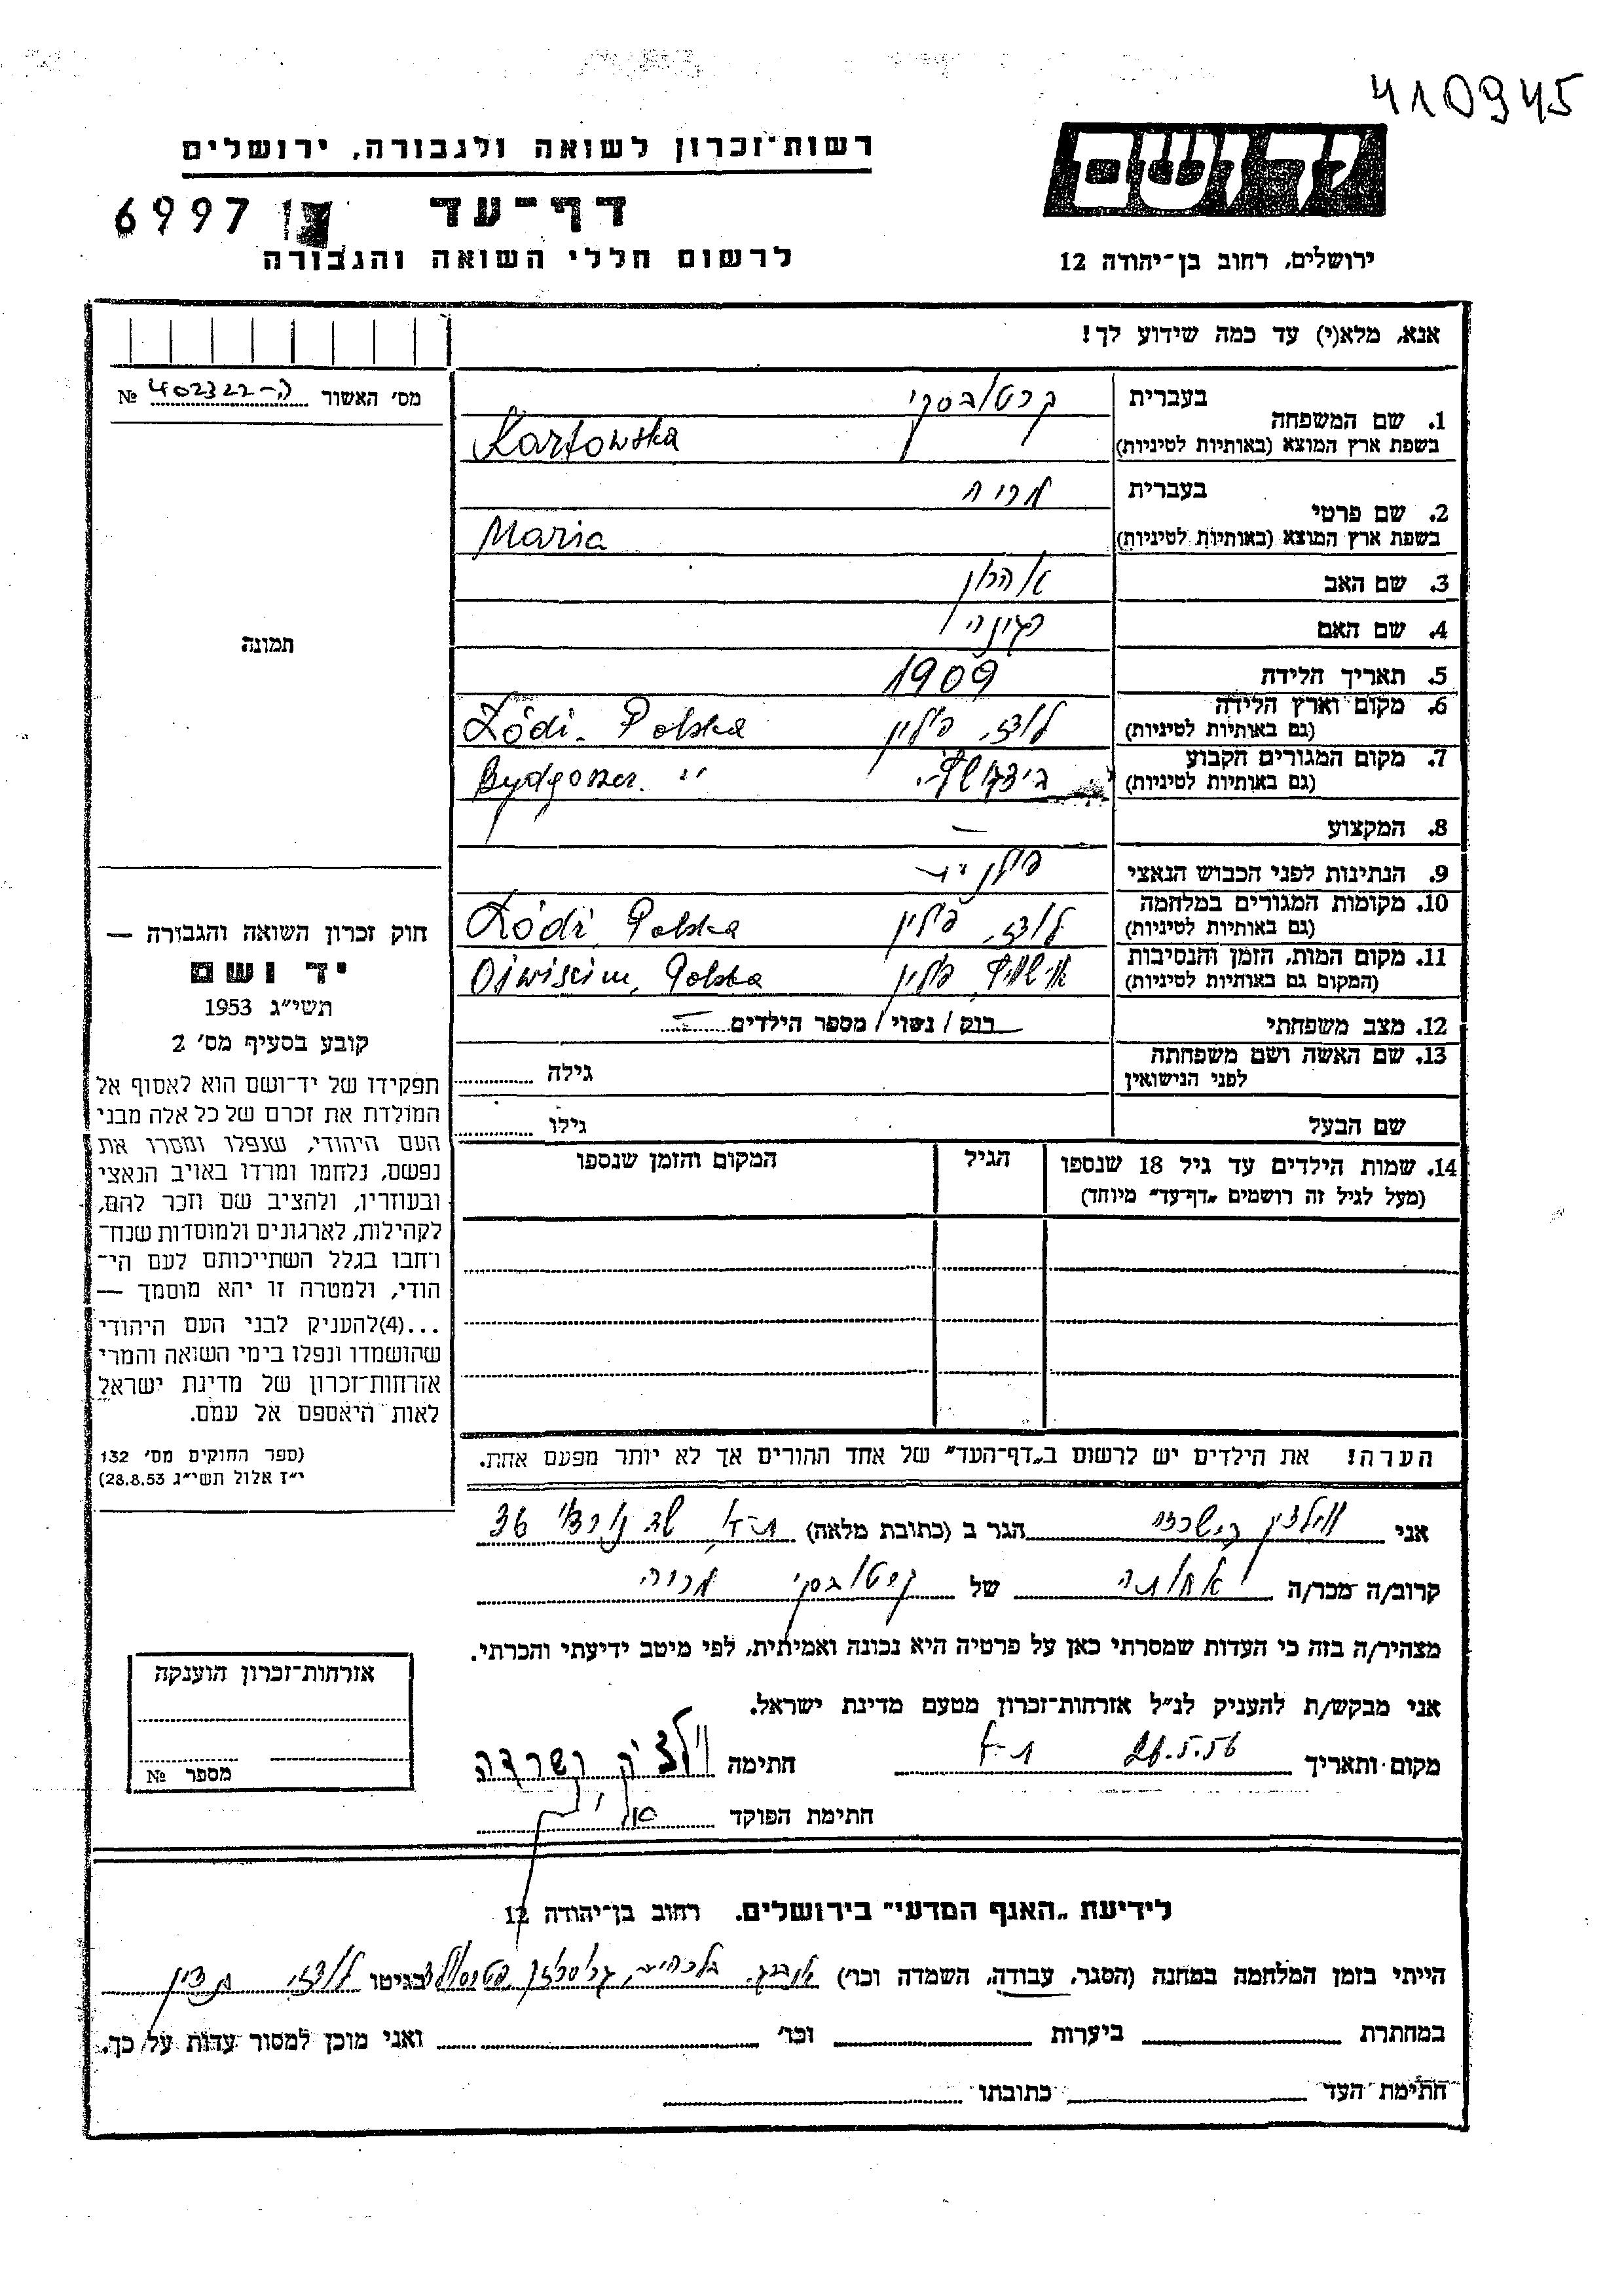 410945
רשות-זכרון לשואה ולגבורה, ירושלים
יד ושם
דף-עד
6997
לרשום חללי השואה והגבורה
ירושלים, רחוב בן-יהודה 12
אנא, מלא(י) עד כמה שידוע לך!
מס' האשור ה-402322 №
1. שם המשפחה
בעברית קרטובסקי
בשפת ארץ המוצא (באותיות לטיניות) Kartowska
2. שם פרטי
בעברית מריה
בשפת ארץ המוצא (באותיות לטיניות) Maria
3. שם האב אהרון
4. שם האם רגינה
5. תאריך הלידה 1909
6. מקום וארץ הלידה
(גם באותיות לטיניות) לודז, פולין Łódź. Polska
7. מקום המגורים הקבוע
(גם באותיות לטיניות) "
8. המקצוע –
9. הנתינות לפני הכבוש הנאצי
10. מקומות המגורים במלחמה
(גם באותיות לטיניות) לודז, פולין Łódź, Polska
11. מקום המות, הזמן והנסיבות
(המקום גם באותיות לטיניות) פולין Polska
12. מצב משפחתי רוק / נשוי / מספר הילדים
13. שם האשה ושם משפחתה
לפני הנישואין
גילה
שם הבעל
גילו
14. שמות הילדים עד גיל 18 שנספו
(מעל לגיל זה רושמים „דף-עד" מיוחד)
הגיל
המקום והזמן שנספו
הערה! את הילדים יש לרשום ב„דף-העד" של אחד ההורים אך לא יותר מפעם אחת.
תמונה
חוק זכרון השואה והגבורה —
יד ושם
תשי"ג 1953
קובע בסעיף מס' 2
תפקידו של יד-ושם הוא לאסוף אל
המולדת את זכרם של כל אלה מבני
העם היהודי, שנפלו ומסרו את
נפשם, נלחמו ומרדו באויב הנאצי
ובעוזריו, ולהציב שם וזכר להם,
לקהילות, לארגונים ולמוסדות שנח-
רבו בגלל השתייכותם לעם הי-
הודי, ולמטרה זו יהא מוסמך —
...(4)להעניק לבני העם היהודי
שהושמדו ונפלו בימי השואה והמרי
אזרחות-זכרון של מדינת ישראל
לאות היאספם אל עמם.
(ספר החוקים מס' 132
י"ז אלול תשי"ג 28.8.53)
אני הגר ב (כתובת מלאה) ת-א 36
קרוב/ה מכר/ה אחותה של קרטובסקי מריה
מצהיר/ה בזה כי העדות שמסרתי כאן על פרטיה היא נכונה ואמיתית, לפי מיטב ידיעתי והכרתי.
אני מבקש/ת להעניק לנ"ל אזרחות-זכרון מטעם מדינת ישראל.
מקום ותאריך ת-א חתימה
חתימת הפוקד
אזרחות-זכרון הוענקה
מספר №
לידיעת „האגף המדעי" בירושלים. רחוב בן-יהודה 12
הייתי בזמן המלחמה במחנה (הסגר, עבודה, השמדה וכו') בגיטו לודז,
במחתרת ביערות וכו' ואני מוכן למסור עדות על כך.
חתימת העד כתובתו